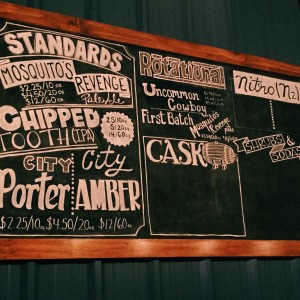 STANDARDS
MOSQUITO'S
REVENGE
$2.25/10oz
$4.50/20oz
$12/60oz
Pale Ale
CHIPPED
TOOTH (IPA)
CITY
Porter
City
AMBER
$2.25/10oz $4.50/20oz $12/60oz
Rotational
Uncommon
Cowboy
First Batch
Mosquito's
Revenge
CASK
Nitro (N2)
SHRUBS &
SODAS